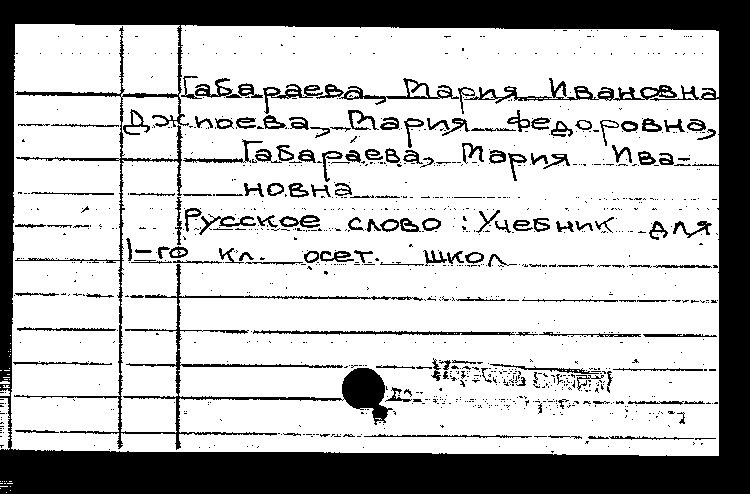 Габараева, Мария Ивановна
Джиоева, Мария Федоровна,
Габараева, Мария Ива-
новна
Русское слово : Учебник для
1-го кл. осет. школ